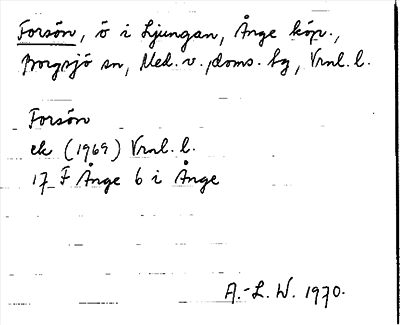 Forsön, ö i Ljungan, Ånge köp.,
Borgsjö sn, Med. v. doms. tg, Vrnl. l.
Forsön
ek (1969) Vrnl. l.
17 F Ånge 6 i Ånge
A.-L. W. 1970.